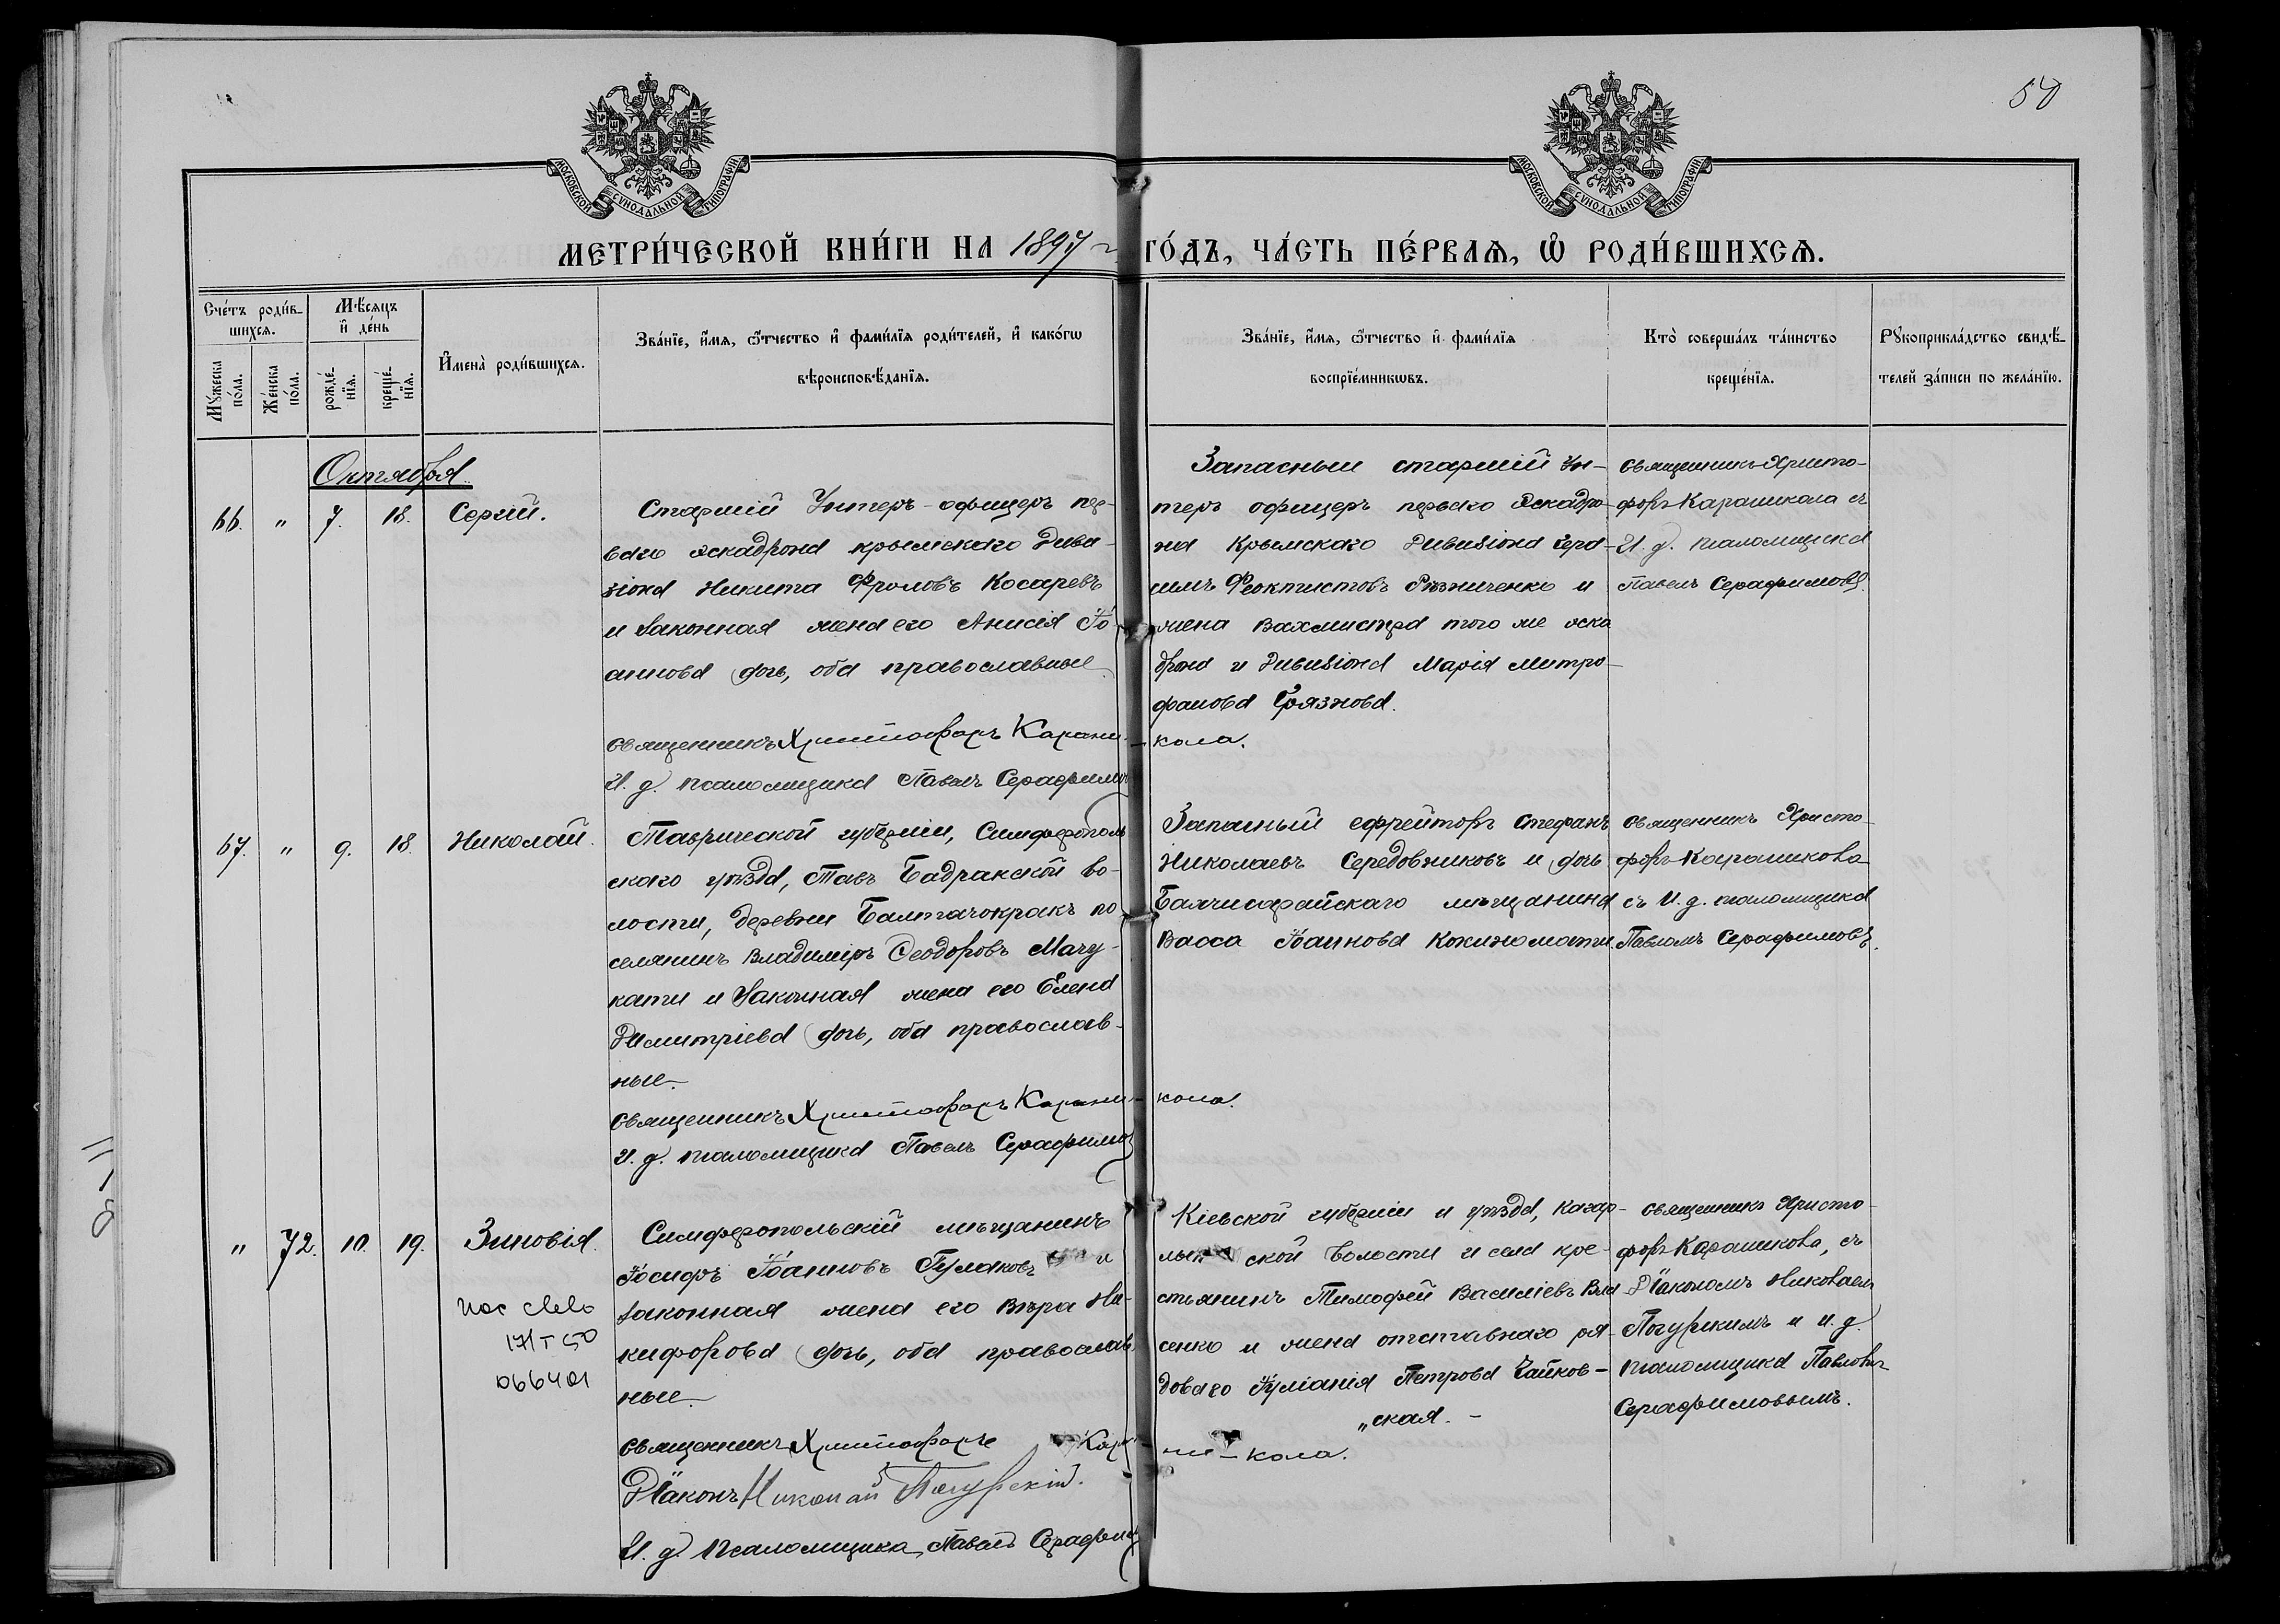 50
МОСКОВСКОЙ СѴНОДАЛЬНОЙ ТИПОГРАФІИ
МОСКОВСКОЙ СѴНОДАЛЬНОЙ ТИПОГРАФІИ
МЕТРИ́ЧЕСКОЙ КНИ́ГИ НА 1897 ГО́ДЪ, ЧА́СТЬ ПЕ́РВАѦ, Ѡ РОДИ́ВШИХСѦ.
Сче́тъ роди́в-
шихсѧ.
Мꙋ́жеска по́ла.
Же́нска по́ла.
Мѣ́сѧцъ и҆ де́нь
рожде́-нїѧ.
креще́-нїѧ.
И҆мена̀ роди́вшихсѧ.
Зва́нїе, и҆́мѧ, ѻ҆́тчество и҆ фами́лїѧ роди́телей, и҆ како́гѡ
вѣроисповѣ́данїѧ.
Зва́нїе, и҆́мѧ, ѻ҆́тчество и҆ фами́лїѧ
воспрїе́мникѡвъ.
Кто̀ соверша́лъ та́инство
креще́нїѧ.
Рꙋкоприкла́дство свидѣ́-
телей за́писи по жела́нїю.
Октября
66. " 7. 18. Сергій.
Старшій Унтеръ-офицеръ пер-
ваго эскадрона крымскаго Диви-
зіона Никита Фроловъ Косаревъ
и законная жена его Анисія Іо-
аннова дочь, оба православные
Священникъ Христофоръ Карани-
кола.
И. д. псаломщика Павелъ Серафимовъ
Запасный старшій Ун-
теръ офицеръ перваго Эскадро-
на Крымскаго Дивизіона Гера-
симъ Феоктистовъ Рѣзниченко и
жена Вахмистра того же эска
дрона и Дивизіона Марія Митро-
фанова Грязнова.
Священникъ Христо-
форъ Караникола съ
И. д. псаломщика
Павелъ Серафимовъ.
67. " 9. 18. Николай.
Таврической губерніи, Симферополь
скаго уѣзда, Тавъ Бадракской во-
лости, деревни Балтачокракъ по-
селянинъ Владиміръ Ѳеодоровъ Мачу-
кати и законная жена его Елена
Димитріева дочь, оба православ-
ные.
Священникъ Христофоръ Карани-
кола.
И. д. псаломщика Павелъ Серафимовъ
Запасный ефрейторъ Стефанъ
Николаевъ Середовниковъ и дочь
Бахчисарайскаго мѣщанина
Васса Іоаннова Кокиномати.
Священникъ Христо-
форъ Караникова
съ И. д. псаломщика
Павломъ Серафимовъ.
" 72. 10. 19. Зиновія.
171Т50
066401
Симферопольскій мѣщанинъ
Іосифъ Іоанновъ Гулаковъ и
законная жена его Вѣра Ни-
кифорова дочь, оба православ-
ные.
Священникъ Христофоръ Кара-
ни-кола.
Діаконъ Николай Погурскій.
И. д. Псаломщика Павелъ Серафимовъ
Кіевской губерніи и уѣзда, Кагар-
лыкской волости и села кре-
стьянинъ Тимофей Василіевъ Вла
сенко и жена отставнаго ря-
доваго Іуліанія Петрова Чайков-
"ская. -
Священникъ Христо-
форъ Караникова, съ
Діакономъ Николаемъ
Погурскимъ и и. д.
псаломщика Павловъ
Серафимовымъ.